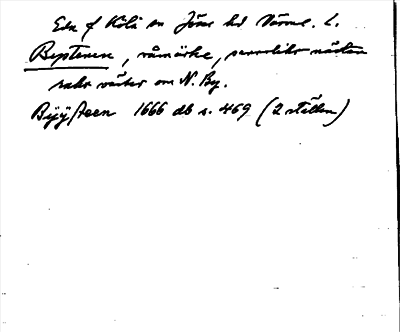 Eda f Köla sn Jösse hd Värml. l.
Bysteren, råmärke, sannolikt nästan
rakt väster om N. By.
Bÿÿsteen 1666 db s. 469 (2 ställen)